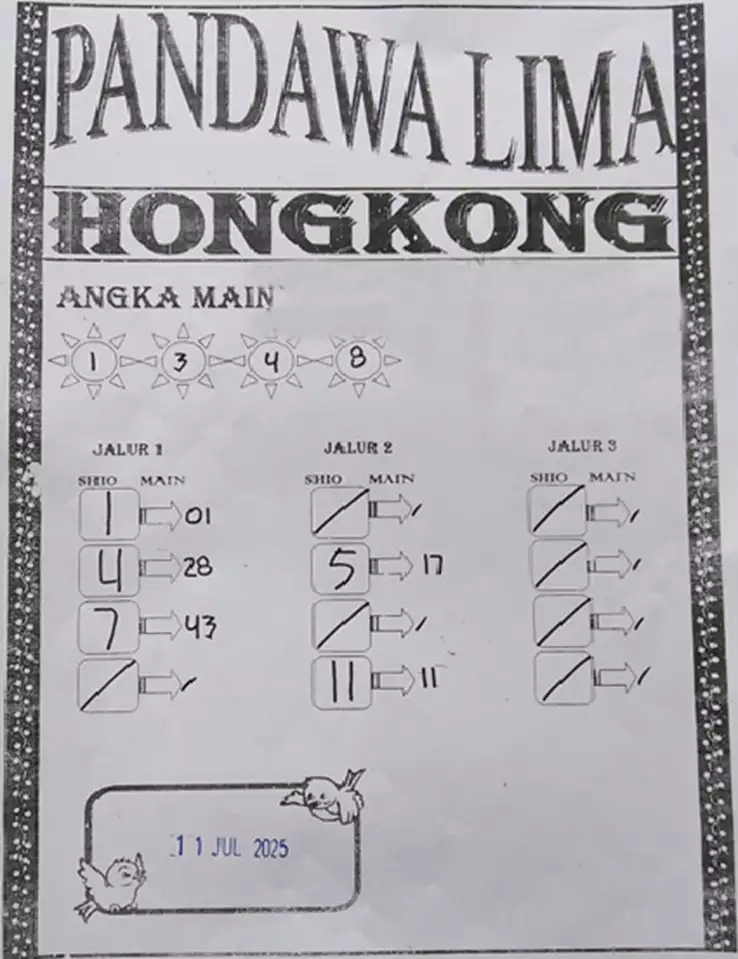 PANDAWA LIMA
HONGKONG
ANGKA MAIN
1 3 4 8
JALUR 1 JALUR 2 JALUR 3
SHIO MAIN SHIO MAIN SHIO MAIN
1 01 / / / /
4 28 5 17 / /
7 43 / / / /
/ / 11 11 / /
11 JUL 2025